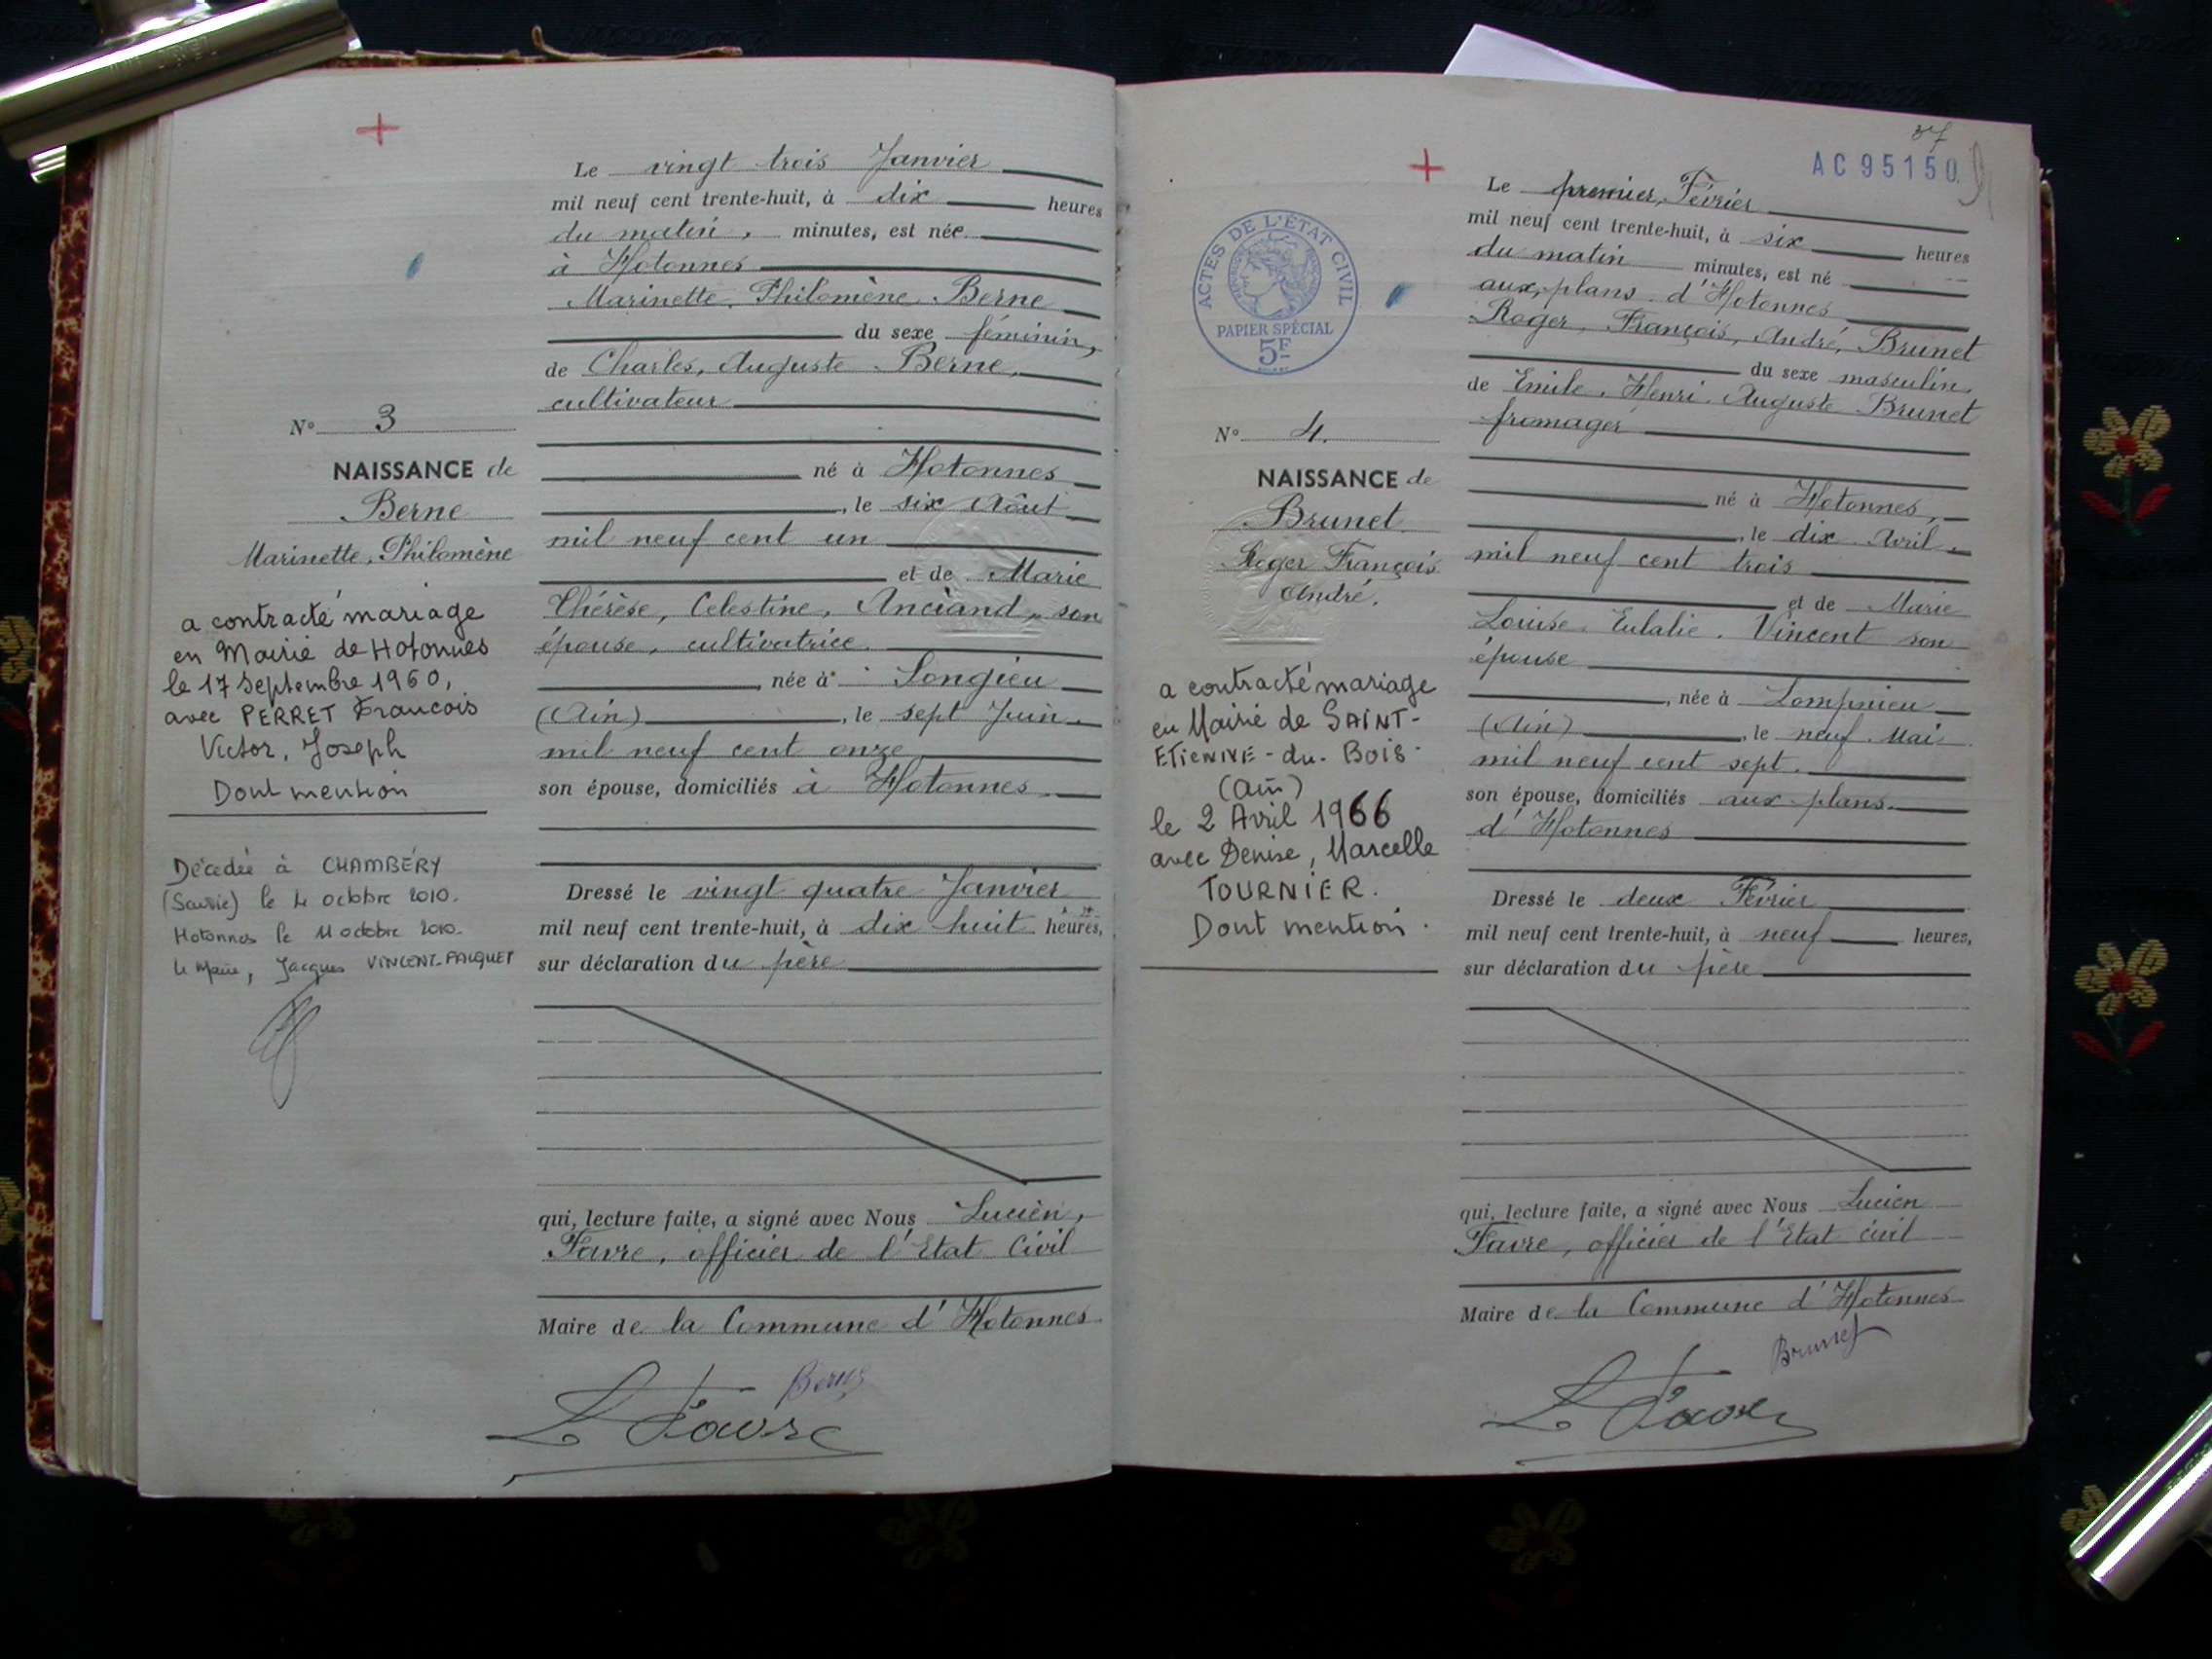 Le vingt trois Janvier
mil neuf cent trente-huit, à dix heures
du matin, minutes, est née
à Hotonnes
Marinette, Philomène Berne
du sexe féminin,
de Charles, Auguste Berne,
cultivateur
né à Hotonnes
, le six Août
mil neuf cent un
et de Marie
Thérèse, Celestine, Anciand, son
épouse, cultivatrice.
, née à Songieu
(Ain), le sept Juin
mil neuf cent onze
son épouse, domiciliés à Hotonnes
Dressé le vingt quatre Janvier
mil neuf cent trente-huit, à dix huit heures,
sur déclaration du père
qui, lecture faite, a signé avec Nous Lucien,
Favre, officier de l'Etat Civil
Maire de la Commune d'Hotonnes
Berne
L Favre
N° 3
NAISSANCE de
Berne
Marinette, Philomène
a contracté mariage
en Mairie de Hotonnes
le 17 Septembre 1960,
avec PERRET Francois
Victor, Joseph
Dont mention
Décédée à CHAMBÉRY
(Savoie) le 4 octobre 2010.
Hotonnes le 11 octobre 2010.
Le Maire, Jacques VINCENT-PALQUET
37
AC 95150
ACTES DE L'ÉTAT CIVIL
PAPIER SPÉCIAL
5F
Le premier, Février
mil neuf cent trente-huit, à six heures
du matin minutes, est né
aux plans d'Hotonnes
Roger, François, André, Brunet
du sexe masculin
de Emile, Henri Auguste Brunet
fromager
né à Hotonnes,
, le dix Avril,
mil neuf cent trois
et de Marie
Louise Eulalie. Vincent son
épouse
, née à Lompnieu
(Ain), le neuf Mai
mil neuf cent sept.
son épouse, domiciliés aux plans
d'Hotonnes
Dressé le deux Février
mil neuf cent trente-huit, à neuf heures,
sur déclaration du père
qui, lecture faite, a signé avec Nous Lucien
Favre, officier de l'Etat civil
Maire de la Commune d'Hotonnes
Brunet
L Favre
N° 4.
NAISSANCE de
Brunet
Roger François
André,
a contracté mariage
en Mairie de SAINT-
ETIENNE-du-Bois
(Ain)
le 2 Avril 1966
avec Denise, Marcelle
TOURNIER.
Dont mention.